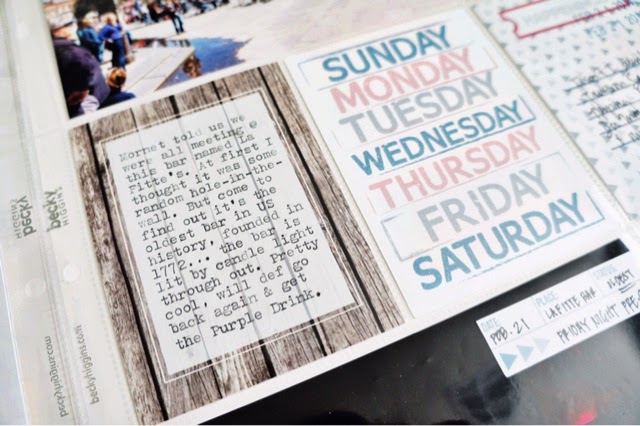 Kornet told us we
were all meeting @
this bar named La
Fitte's. At first I
thought it was some
random hole-in-the-
wall. But come to
find out it's the
oldest bar in US
history, founded in
1772... the bar is
lit by candle light
through out. Pretty
cool, will def go
back again & get
the Purple Drink.
SUNDAY
MONDAY
TUESDAY
WEDNESDAY
THURSDAY
FRIDAY
SATURDAY
DATE:
FEB. 21
PLACE:
LAFITTE BAR
FRIDAY NIGHT
becky
HIGGINS
becky
HIGGINS
beckyhiggins.com
beckyhiggins.com